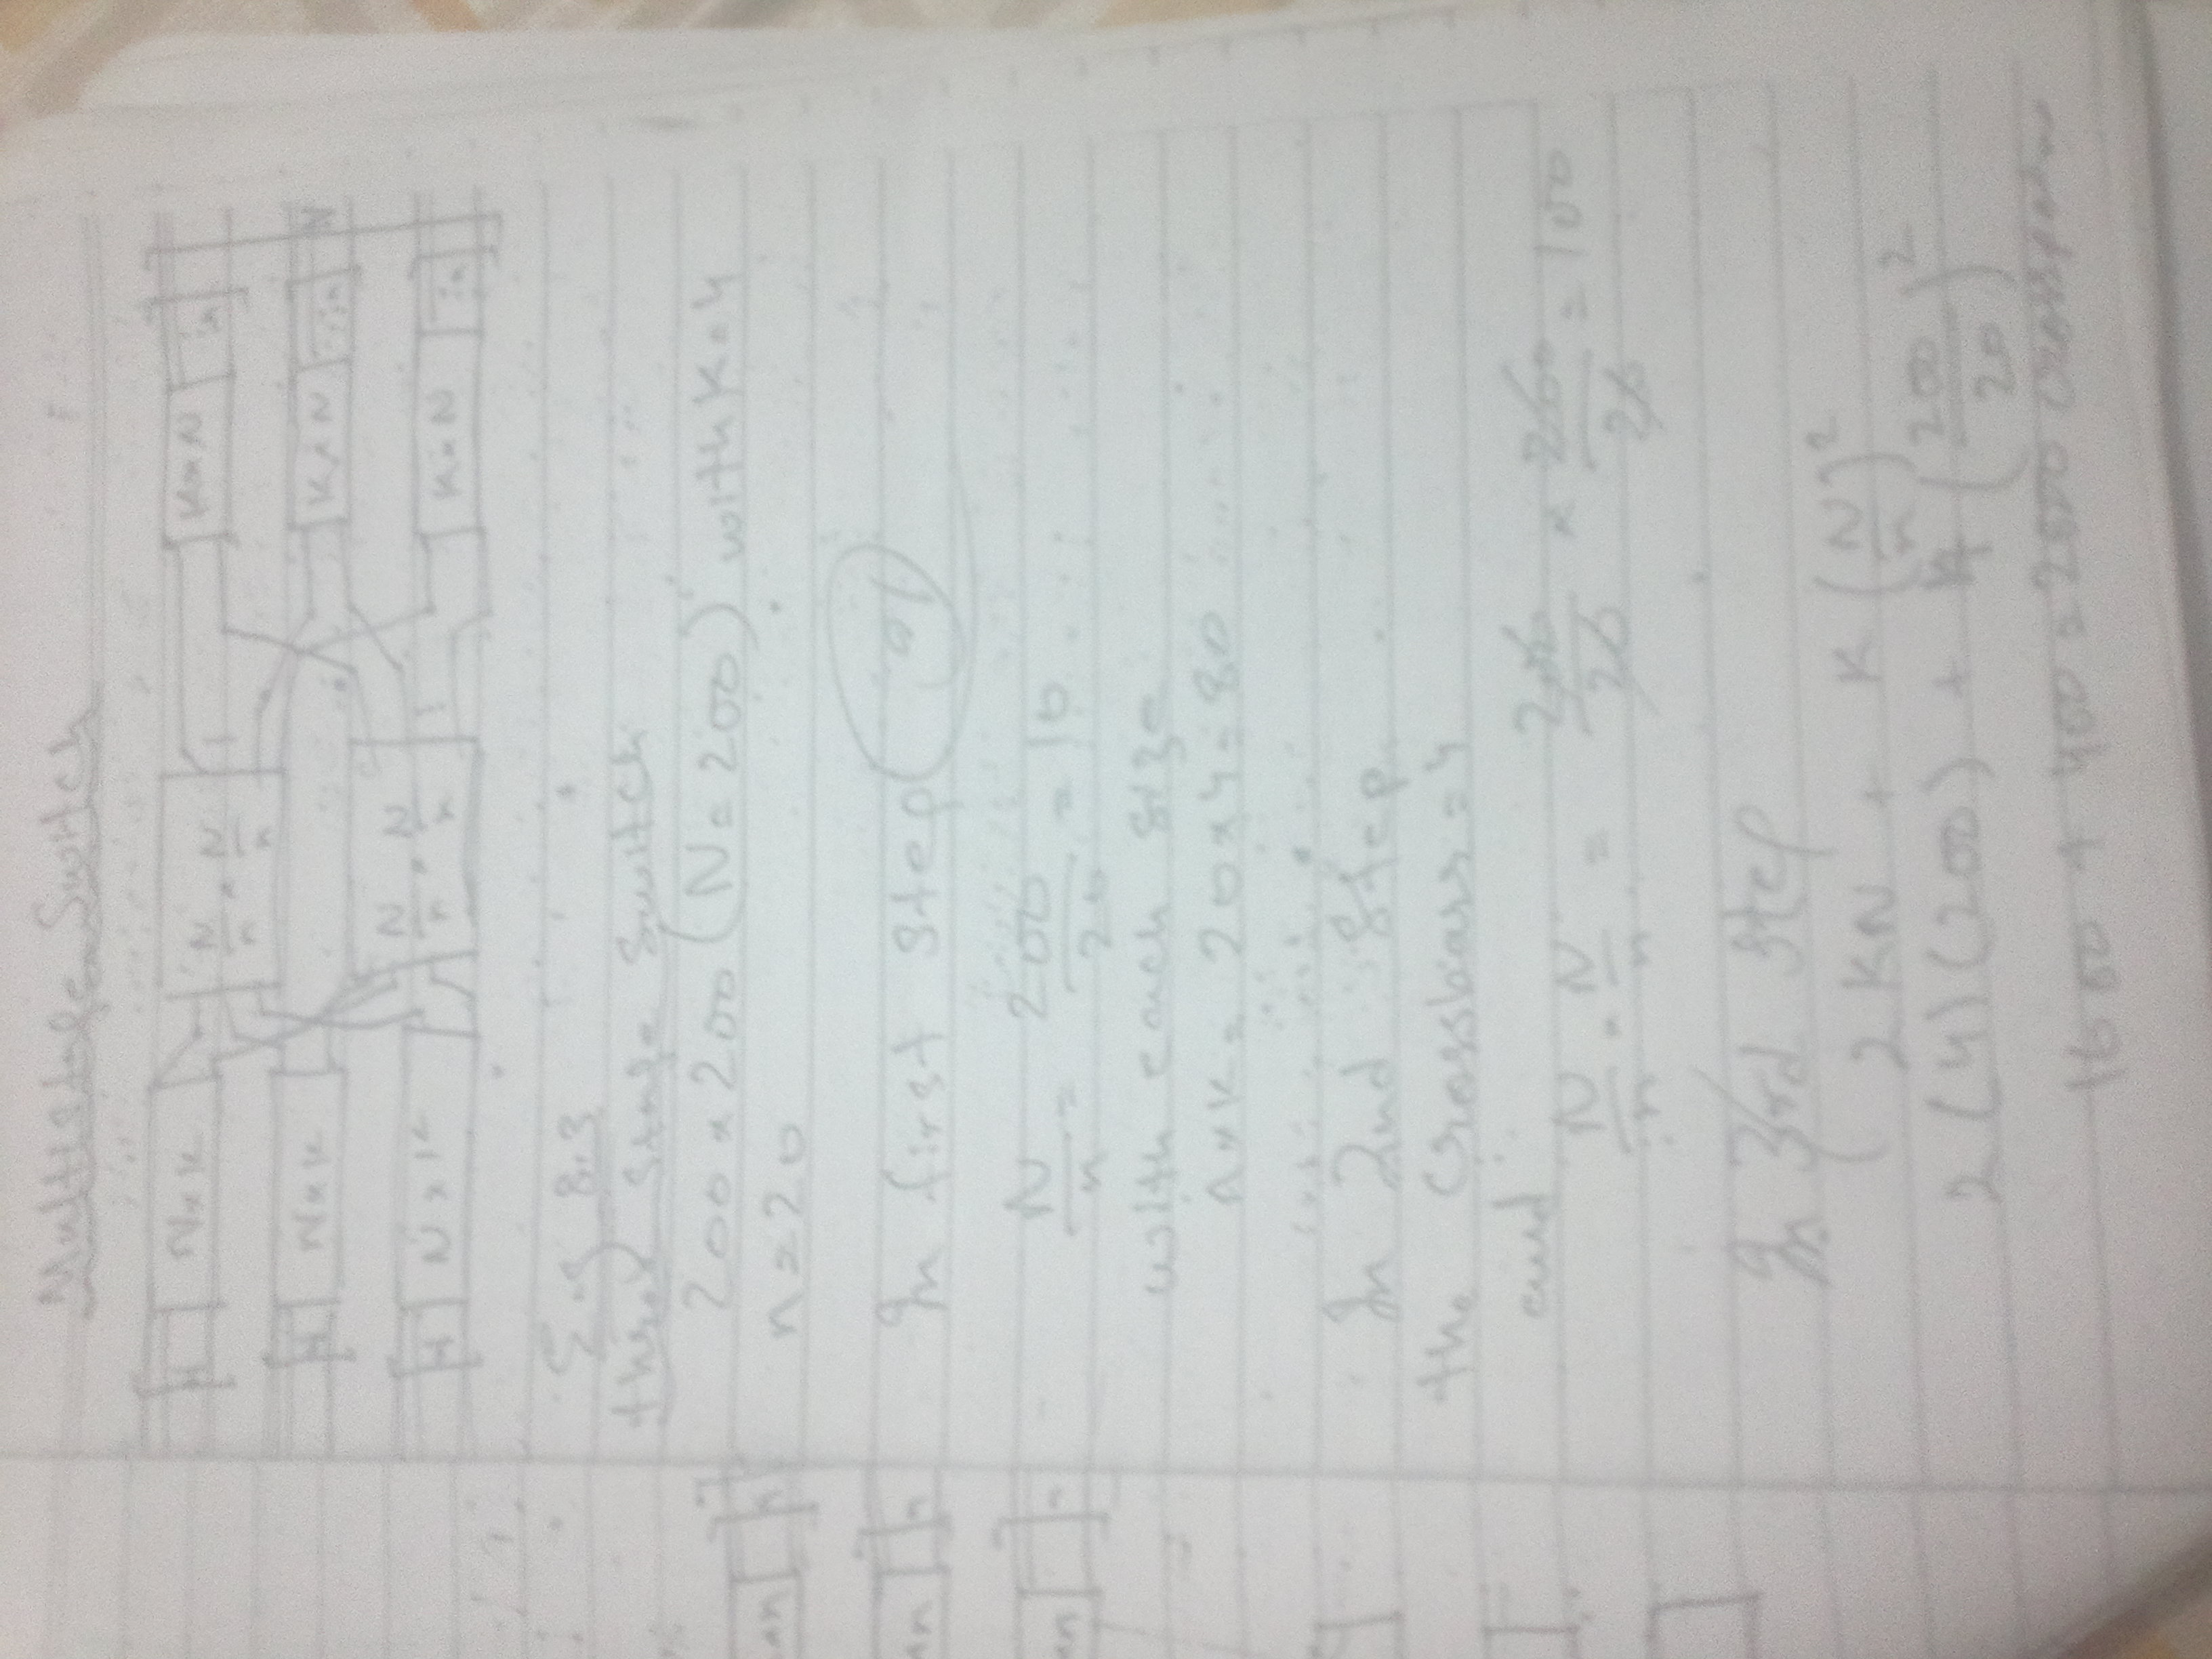 Multistage Switch
n N×K N/n × N/n K×N n
n N×K K×N n N
n N×K N/n × N/n K×N n
Eg 8.3
three stage switch
200 × 200 (N = 200) with K=4
n = 20
In first step
N/n = 200/20 = 10
with each size
n×K = 20×4 = 80
In 2nd step
the crossbars = 4
and
N/n × N/n = 200/20 × 200/20 = 100
In 3rd step
2KN + K (N/n)²
2(4)(200) + 4 (200/20)²
1600 + 400 = 2000
n
n
n